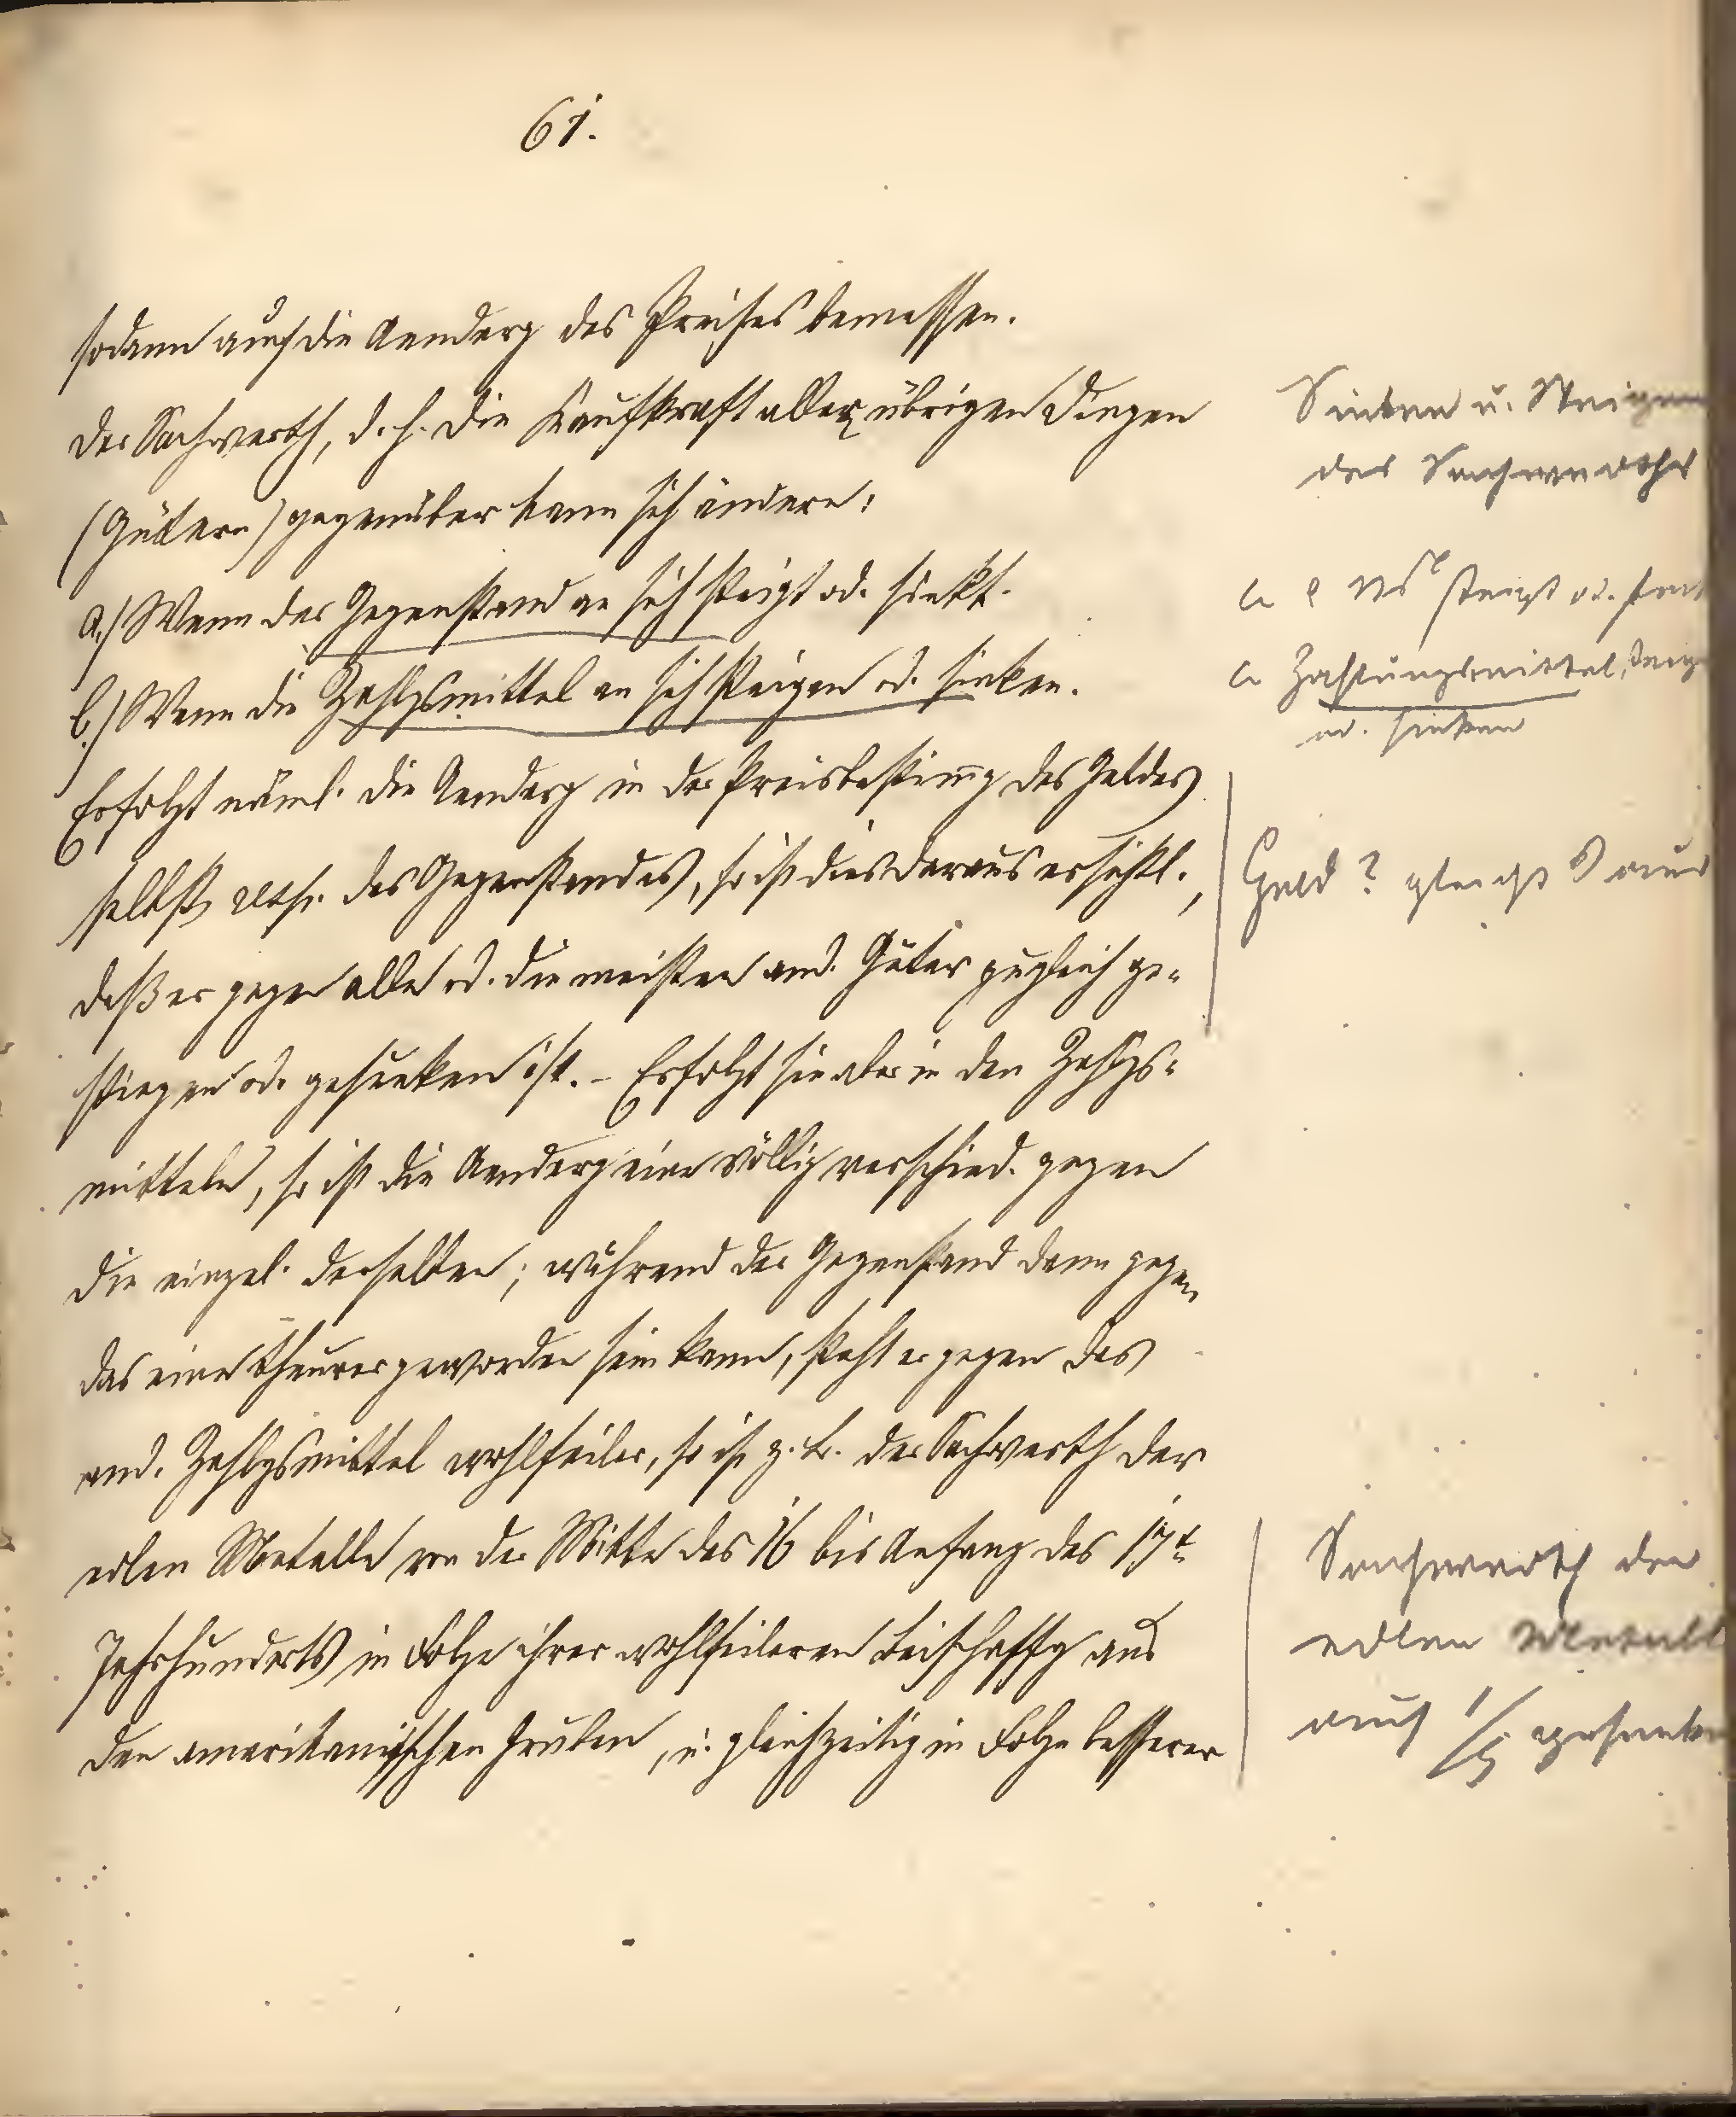 61.
sodann auf die Aenderg des Preises bemessen.
Der Sachwerth, d. h. die Kaufkraft allen übrigen Dingen
(Gütern) gegenüber kann sich ändern:
a.) Wenn der Gegenstand an sich steigt od. sinkt.
b.) Wenn die Zahlgsmittel an sich steigen od. sinken.
Erfolgt näml. die Aenderg in der Preisbestimg des Geldes
selbst, des Gegenstandes, so ist dies daraus ersichtl.,
daß er gegen alle od. die meisten and. Güter zugleich ge-
stiegen od. gesunken ist. – Erfolgt sie aber in den Zahlgs-
mitteln, so ist die Aenderg eine völlig verschied. gegen
die einzel. derselben; während der Gegenstand dann gegen
das eine theurer geworden sein kann, steht er gegen das
and. Zahlgsmittel wohlfeiler, so ist z. B. der Sachwerth der
edlen Metalle von der Mitte des 16 bis Anfang des 17t
Jahrhunderts in Folge ihrer wohlfeileren Beischaffg aus
den amerikanischen Gruben, u. gleichzeitig in Folge besserer
Sinken u. Steigen
des Sachwerths
steigt od. sinkt
Zahlungsmittel steig
od. sinken
Geld ?
Sachwerth der
edlen Metall
auf 1/5 gesunken